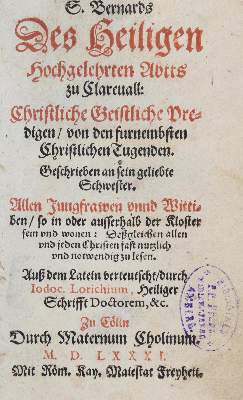 S. Bernards
Des Heiligen
Hochgelehrten Abtts
zu Clareuall:
Christliche Geistliche Pre-
digen / von den furnembsten
Christlichen Tugenden.
Geschrieben an sein geliebte
Schwester.
Allen Jungfrawen vnnd Witti-
ben / so in oder ausserhalb der Kloster
sein vnd wonen: Deßgleichen allen
vnd jeden Christen fast nutzlich
vnd notwendig zu lesen.
Auß dem Latein verteutscht / durch
Iodoc. Lorichium, Heiliger
Schrifft Doctorem, &c.
Zu Cölln
Durch Maternum Cholinum.
M. D. LXXXI.
Mit Röm. Kay. Maiestat Freyheit.